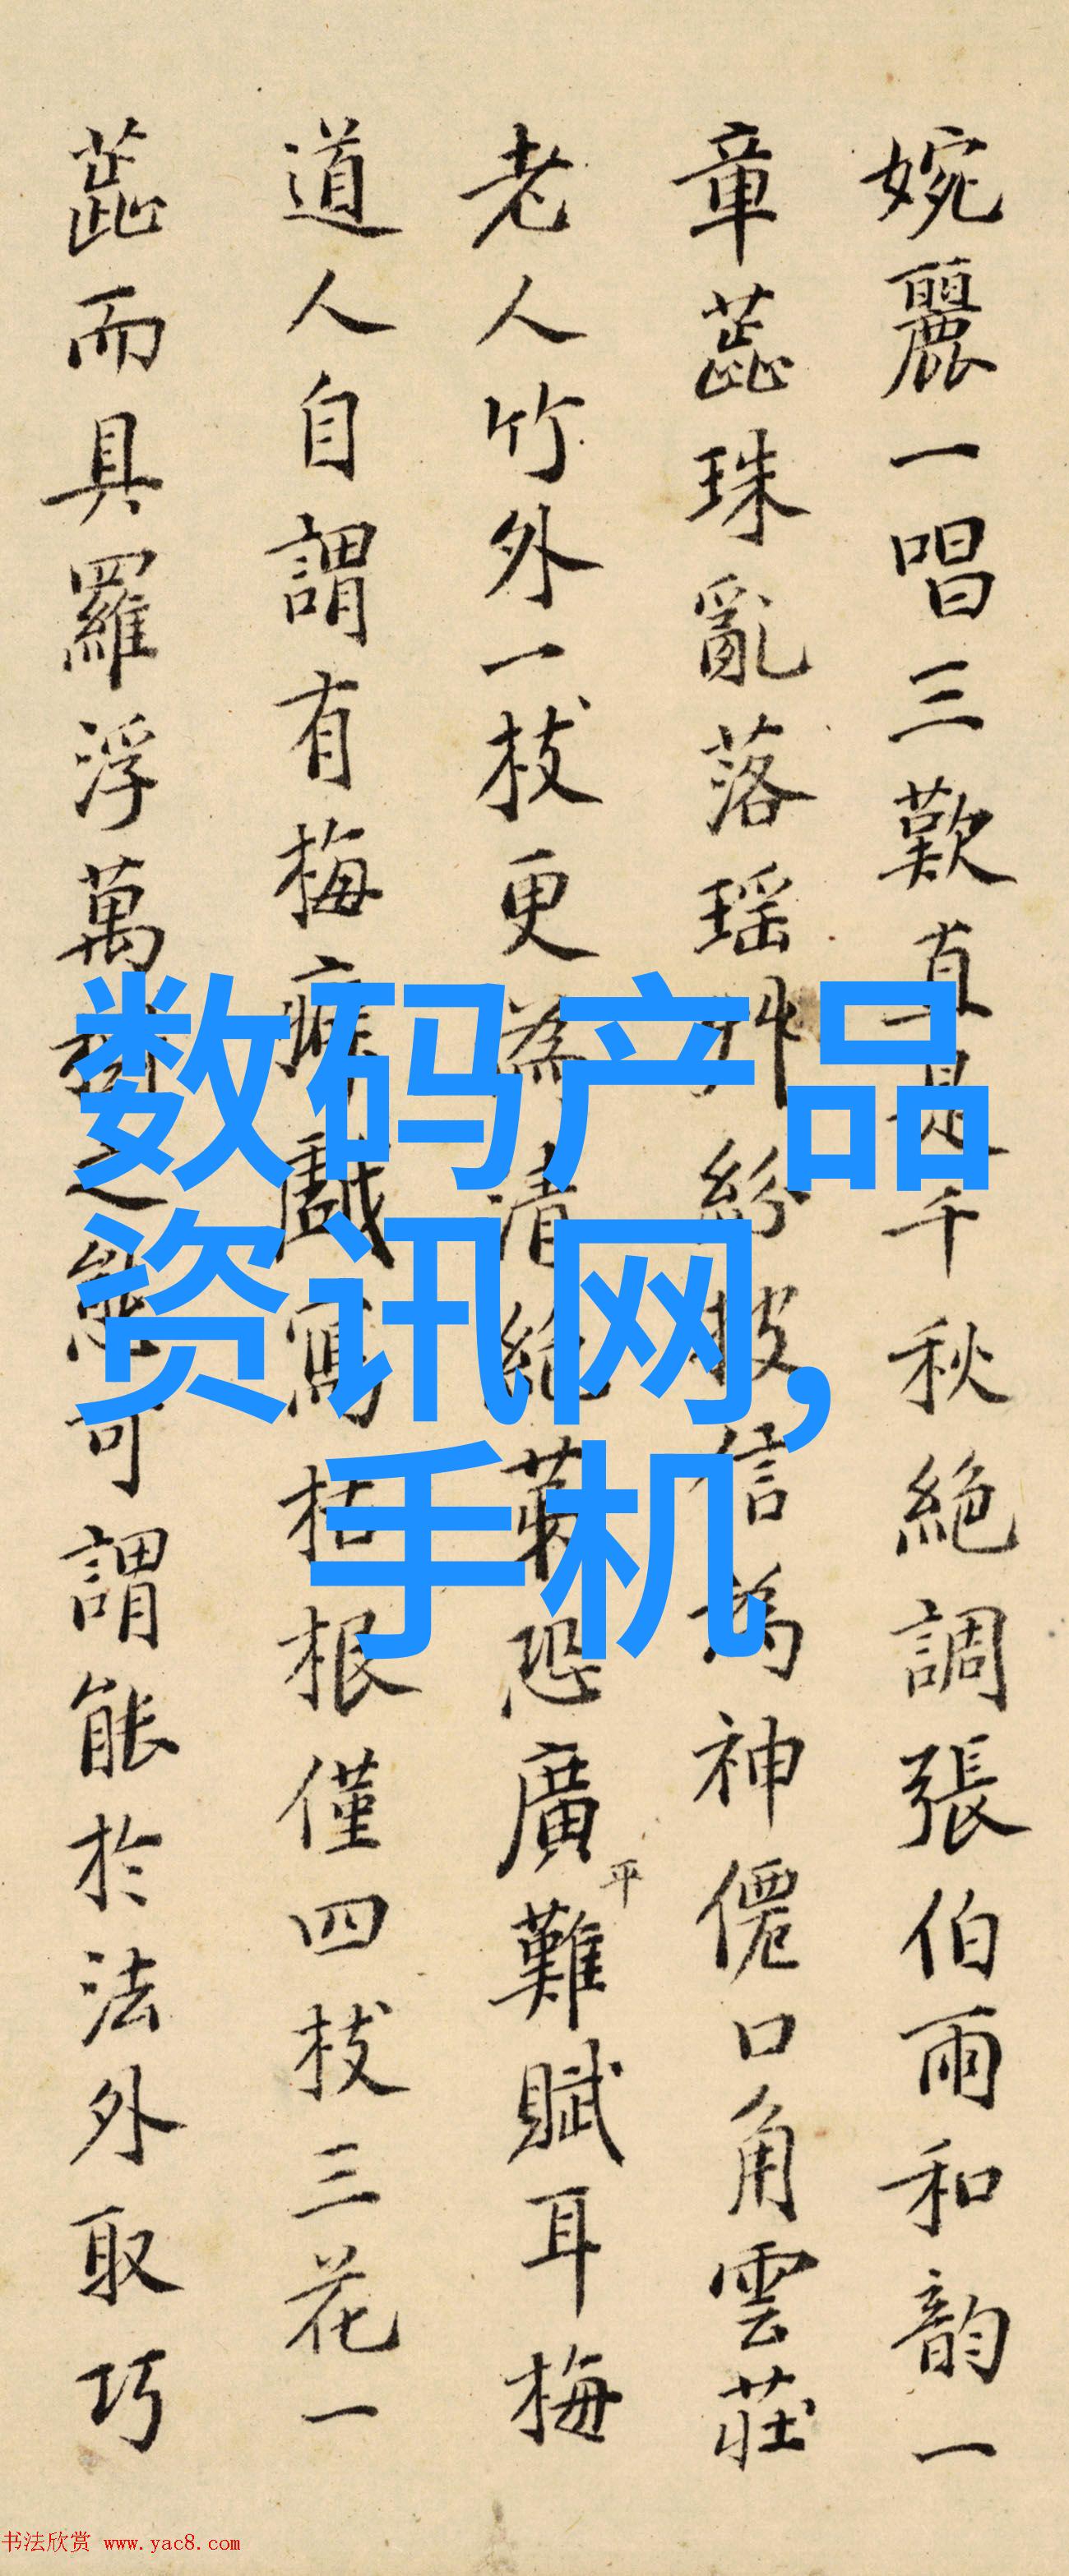 婉麗一唱三歎真是千秋絶調張伯雨和韵一
章蕋珠亂落瑶艸紛披信為神僊口角雲莊
老人竹外一枝更為清絶萊恐廣難賦耳梅
平
道人自謂有梅癖戲寫枯根僅四枝三花一
蕋而具羅浮萬樹之態可謂能於法外取巧
数码产品
资讯网,
手机
书法欣赏 www.yac8.com